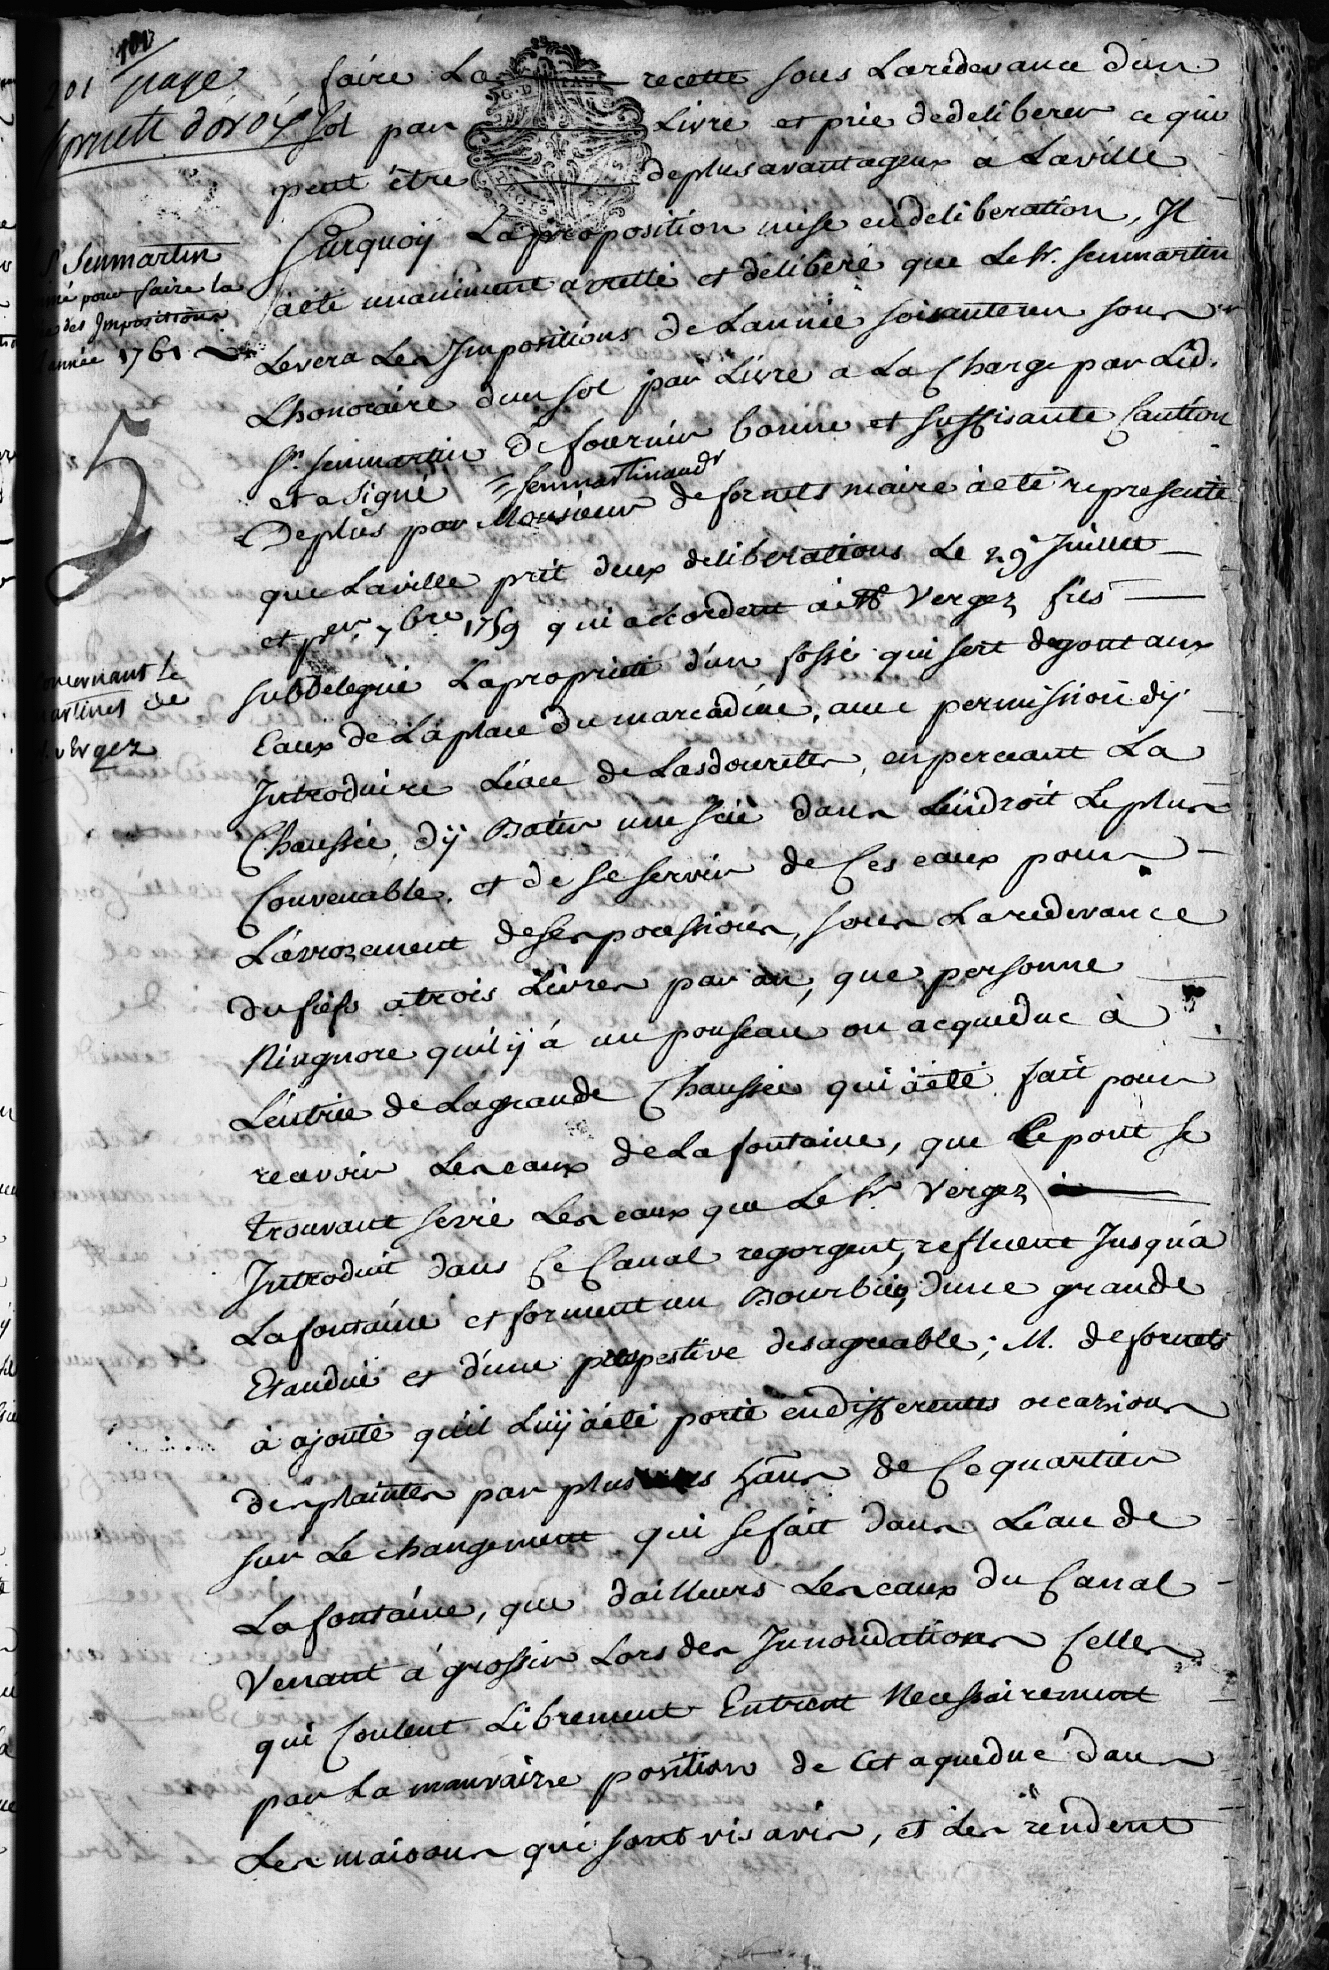 101
201 page
fornetz d'oroix
faire La recette sous Laredevance d'un
sol par Livre et prie dedeliberer ce qui
peut être deplusavantageux à Laville
Surquoÿ Laproposition mise endeliberation, Il
S.r Senmartin
mé pour faire la
des Impositions
année 1761
aété unanimement arretté et délibéré que Le Sr. senmartin
Levera Les Impositions de Lannée soixanteun sous
Lhonoraire d'un sol par Livre a La Charge par Led.
Sr. senmartin de fournir bonne et suffisante Caution
et a signé = senmartin
5
Deplus par Monsieur de fornets maire àeté representé
que Laville prit deux deliberations Le 29e Juillet
et per 7bre 1759 qui accordent à Mr Vergez
oncernant le
de
Vergez
subdelegué Lapropriété d'un fossé qui sert degout aux
Eaux de Laplace dumarcadieu, avec permission dÿ
Introduire L'eau de Lasdourettes, enpercant La
Chaussée, dÿ Batir une scie dans Lendroit Leplus
Convenable, et de se servir de Ces eaux pour
L'arrozement deses possessions, sous Laredevance
dufiefs atrois Livres par an, que personne
N'ingnore quil ÿ á un ponseau ou acqueduc à
L'entrée de Lagrande Chaussée qui àeté fait pour
recevoir Les eaux de Lafontaine, que Ce pont se
trouvant serré Les eaux que Le Sr Vergez
Introduit dans Ce Canal regorgent, refluent Jusqu'à
Lafontaine et forment un Bourbier, dune grande
Etandue et d'une perspestive desagreable; M. defornets
à ajouté qu'il Luÿ àeté porté endifferentes occazions
desplaintes par plusieurs hans de Cequartier
sur Le changement qui sefait dans Leau de
Lafontaine, que dailleurs Les eaux du Canal
Venant à grossir Lors des Innondations Celles
qui Coulent Librement Entrent Necessairement
par La mauvaise position de Cet aqueduc dans
Les maisons qui sont vis avis, et Les rendent